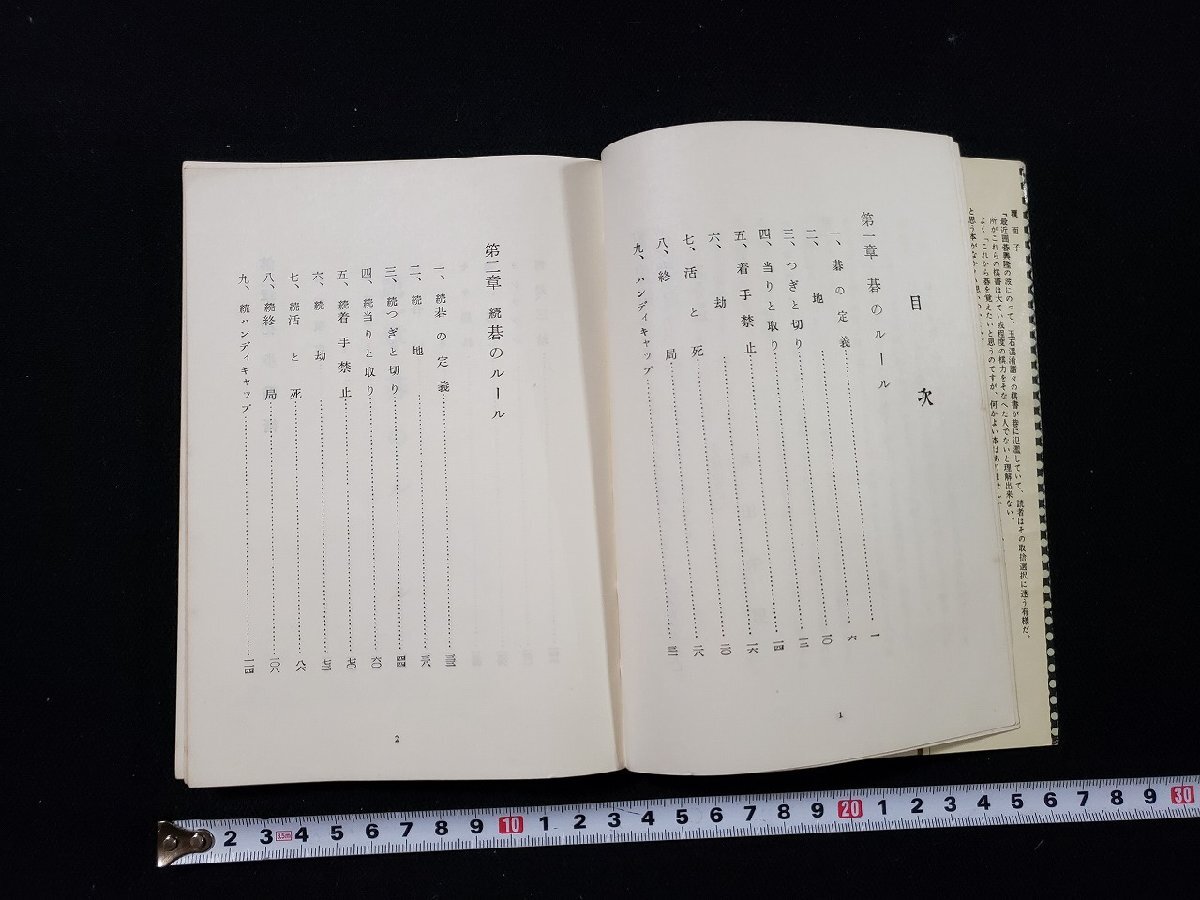 目次
第一章 碁のルール
一、碁の定義 一
二、地 六
三、つぎと切り 一〇
四、当りと取り 一二
五、着手禁止 一四
六、劫 一六
七、活と死 二〇
八、終局 二八
九、ハンディキャップ 三一
1
第二章 続碁のルール
一、続碁の定義 三三
二、続地 三八
三、続つぎと切り 四四
四、続当りと取り 六〇
五、続着手禁止 七〇
六、続劫 七三
七、続活と死 八八
八、続終局 一〇八
九、続ハンディキャップ 一一四
2
覆面子
「最近囲碁興隆の波にのって、玉石混淆
の棋書が巷に氾濫していて、読者はその取捨選択に迷う有様だ。
所がこれらの棋書は大てい或程度の棋力をそなへた人でないと理解出来ない。
「これから碁を覚えたいと思うのですが、何かよい本は
と思う本が
2 3 3.5m 4 5 6 7 8 9 10 1 2 3 4 5 6 7 8 9 20 1 2 3 4 5 6 7 8 9 30